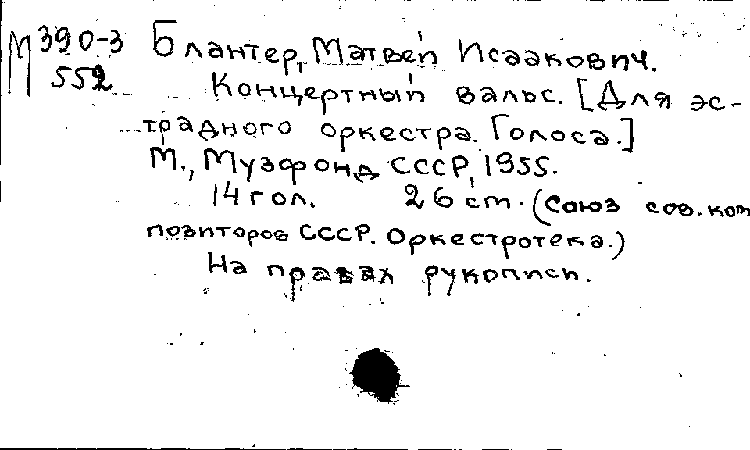 М 390-3
552
Блантер, Матвей Исаакович.
Концертный вальс. [Для эс-
традного оркестра. Голоса.]
М., Музфонд СССР, 1955.
14 гол. 26 cm. (Союз сов. ком
позиторов СССР. Оркестротека.)
На правах рукописи.